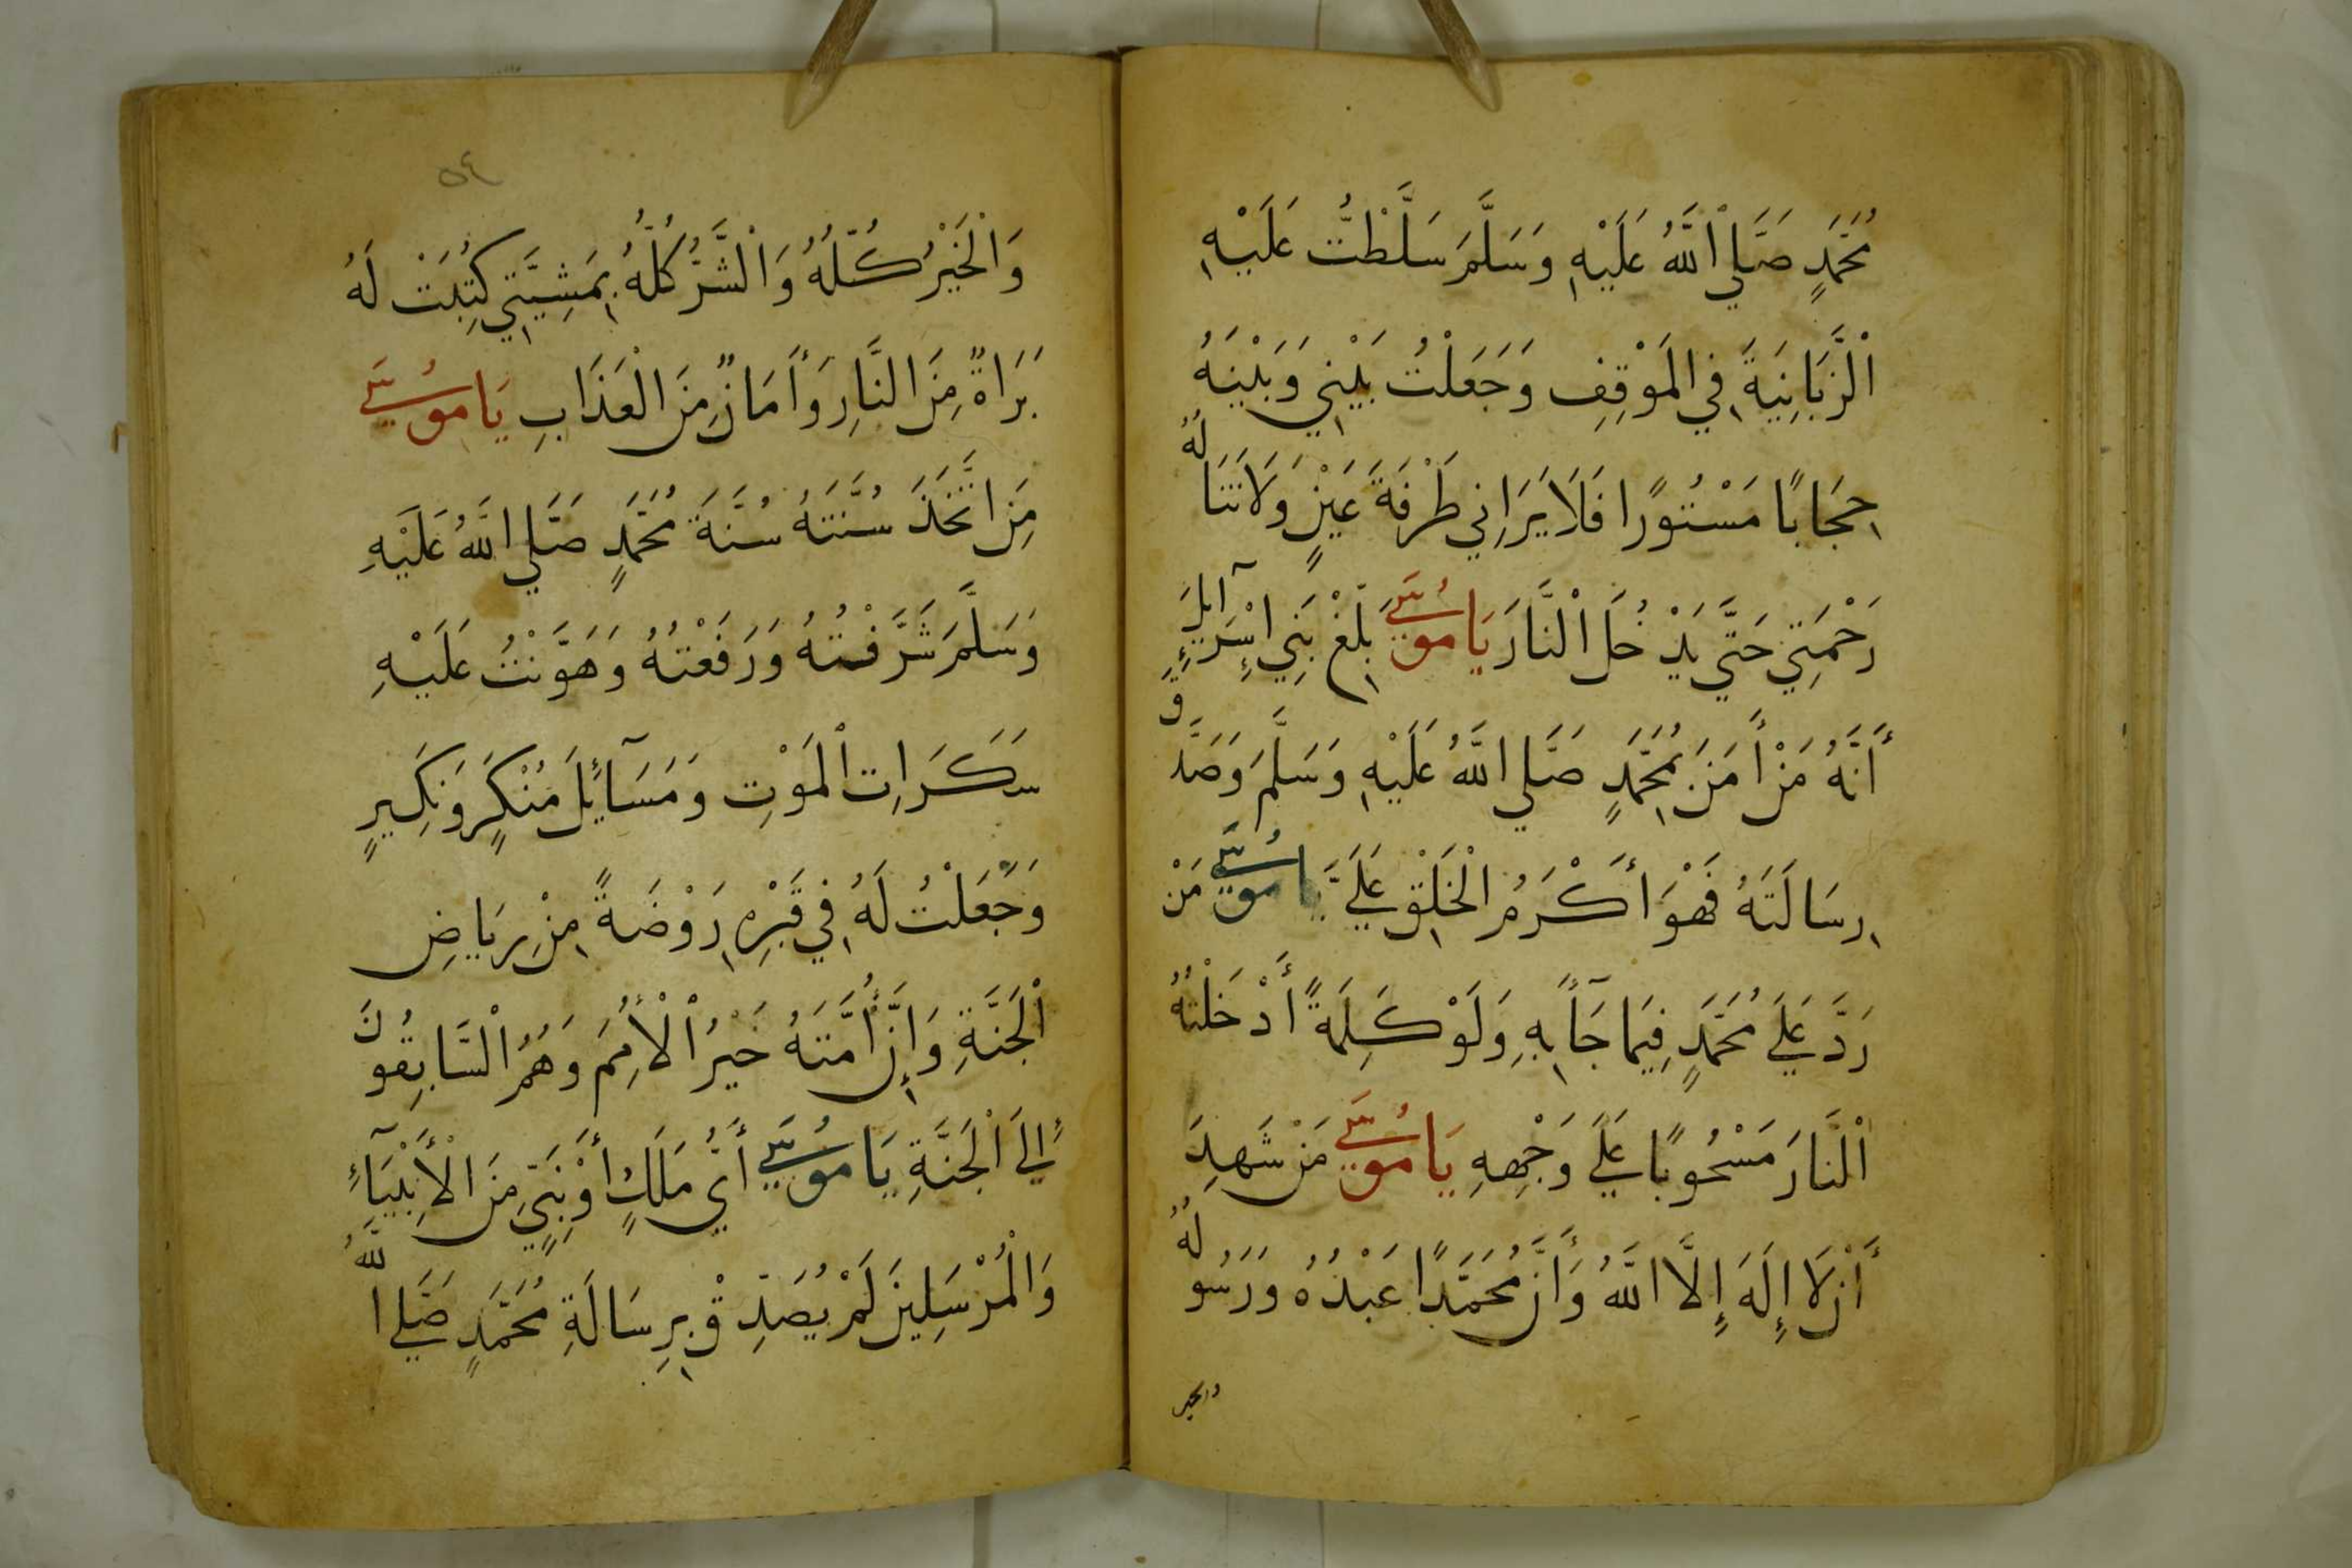 مُحَمَّدٍ صَلَّي اْللَّهُ عَلَيْهِ وَسَلَّمَ سَلَّطْتُ عَلَيْهِ
اْلزَّبَانِيَةَ فِي الْمَوْقِفِ وَجَعَلْتُ بَيْنِي وَبَيْنَهُ
حِجَابًا مَسْتُورًا فَلَا يَرَانِي طَرْفَةَ عَيْنٍ وَلَا تَنَالُهُ
رَحْمَتِي حَتَّي يَدْخُلَ اْلنَّارَ يَا مُوسَيٰ بَلِّغْ بَنِي اسْرَآئِيلَ
أَنَّهُ مَنْ أَمَنَ بِمُحَمَّدٍ صَلَّي اللَّهُ عَلَيْهِ وَسَلَّمَ وَصَدَّقَ
رِسَالَتَهُ فَهْوَ أَكْرَمُ الْخَلْقِ عَلَيَّ يا مُوسَيٰ مَنْ
رَدَّ عَلَي مُحَمَّدٍ فِيمَا جَآءَ بِهِ وَلَوْ كَلِمَةً أَدْخَلْتُهُ
اْلنَّارَ مَسْحُوبًا عَلَي وَجْهِهِ يَا مُوسَيٰ مَنْ شَهِدَ
أَنْ لَا إِلَهَ إِلَّا اللَّهُ وَأَنَّ مُحَمَّدًا عَبْدُهُ وَرَسُولُهُ
والخير
٥٤
وَاْلْخَيْرُ كُلُّهُ وَاْلشَّرُّ كُلُّهُ بِمَشِيَّتِي كَتِبَتْ لَهُ
بَرَاةً مِنَ النَّارِ وَأَمَانٌ مِنَ الْعَذَابِ يَا مُوسَيٰ
مِنَ اتَّخَذَ سُنَّتَهُ سُنَّةَ مُحَمَّدٍ صَلَّي اللَّهُ عَلَيْهِ
وَسَلَّمَ شَرَّفْتُهُ وَرَفَعْتُهُ وَهَوَّنْتُ عَلَيْهِ
سَكَرَاتِ اْلمَوْتِ وَمَسَآئِلَ مُنْكَرٍ وَنَكِيرٍ
وَجَعَلْتُ لَهُ فِي قَبْرِهِ رَوْضَةً مِنْ رِيَاضِ
اْلْجَنَّةِ وَإِنَّ أُمَّتَهُ خَيْرُ اْلْأُمَمِ وَهُمُ اْلسَّابِقُونَ
إِلَي اَلْجَنَّةِ يَا مُوسَيٰ أَيُّ مَلَكٍ أَوْ نَبِيٍّ مِنَ الْأَنْبِيَآءِ
وَالْمُرْسَلِينَ لَمْ يُصَدِّقْ بِرِسَالَةِ مُحَمَّدٍ صَلَّي اللَّهُ